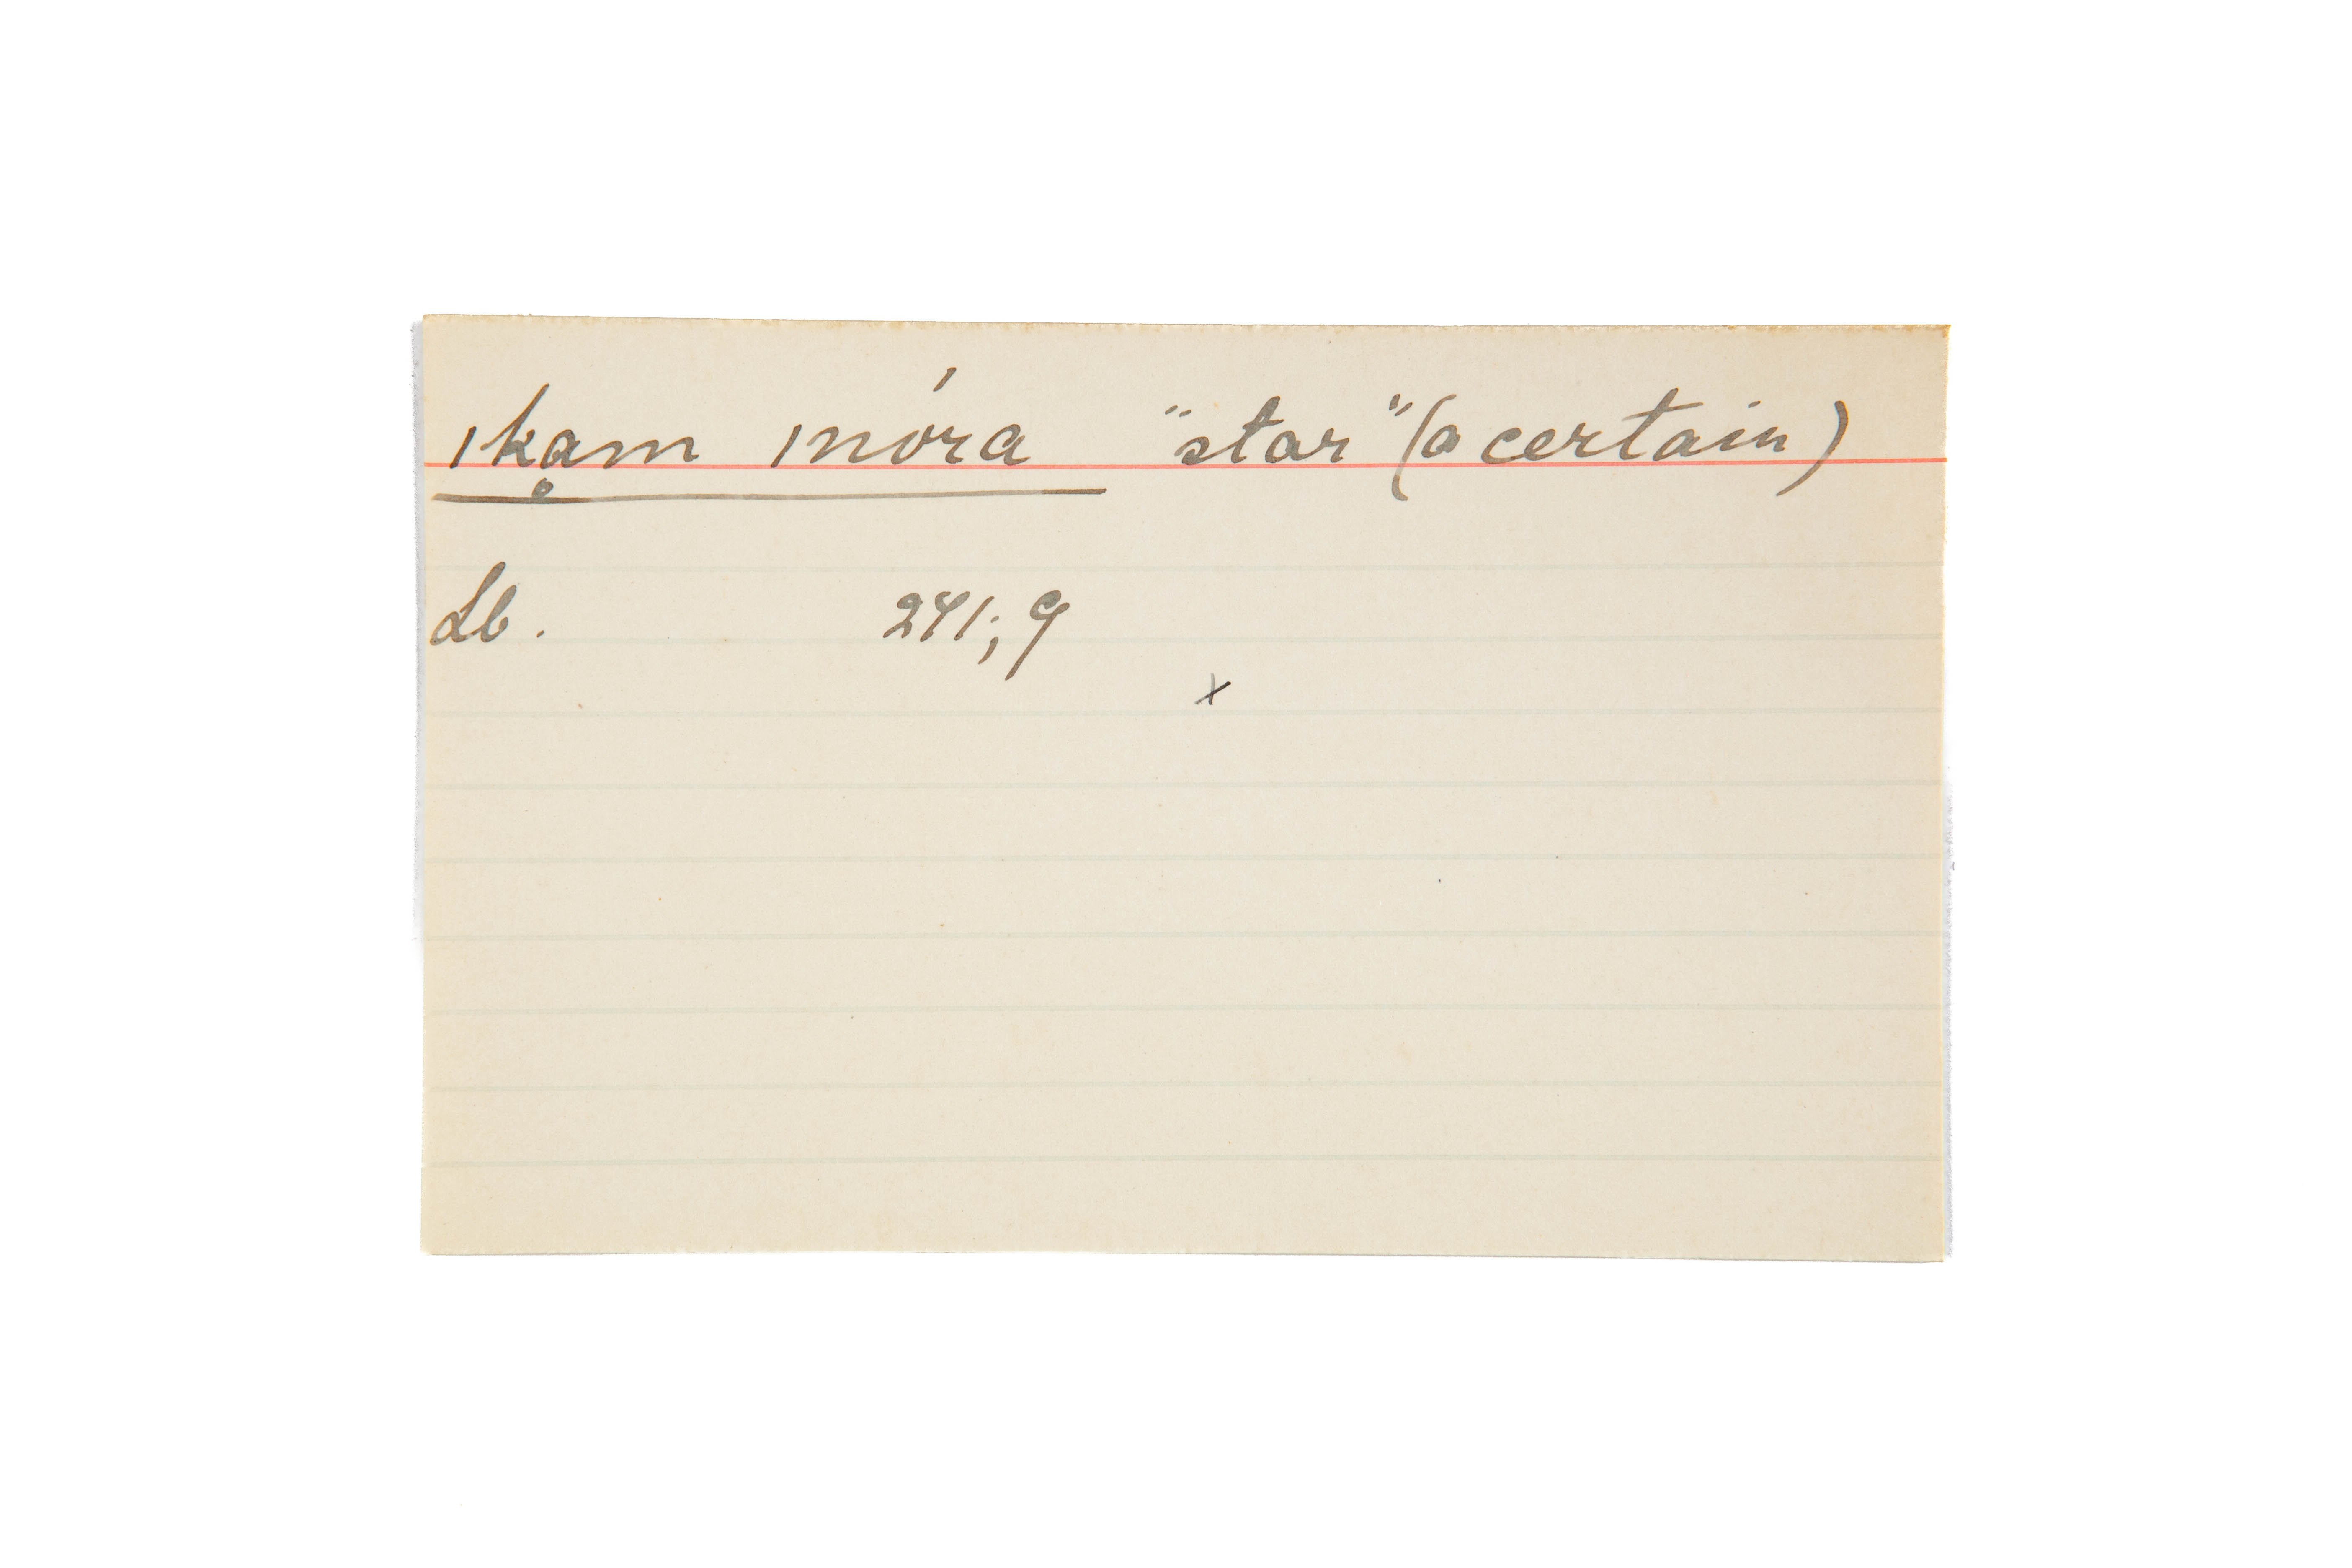 ıkạm ınóra "star" (a certain)
Lb. 241; 9
x